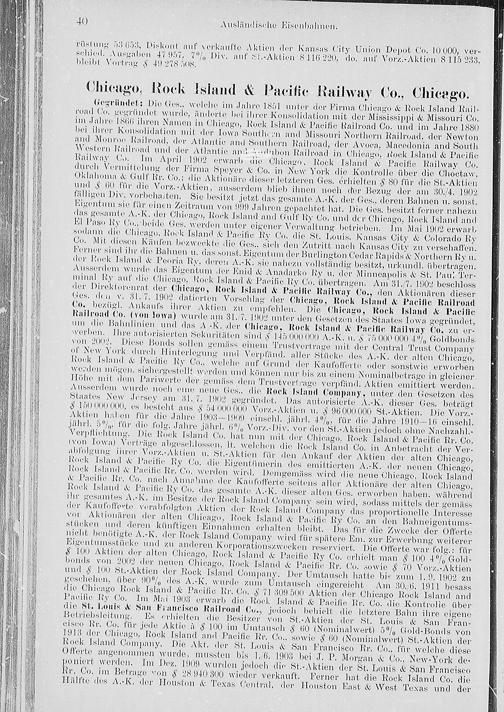 40
Ausländische Eisenbahnen.
rüstung 53 653, Diskont auf verkaufte Aktien der Kansas City Union Depot Co. 10 000, ver-
schied. Ausgaben 47 957, 7% Div. auf St.-Aktien 8 116 220, do. auf Vorz.-Aktien 8 115 233,
bleibt Vortrag $ 49 278 508.
Chicago, Rock Island & Pacific Railway Co., Chicago.
Gegründet: Die Ges., welche im Jahre 1851 unter der Firma Chicago & Rock Island Rail-
road Co. gegründet wurde, änderte bei ihrer Konsolidation mit der Mississippi & Missouri Co.
im Jahre 1866 ihren Namen in Chicago, Rock Island & Pacific Railroad Co. und im Jahre 1880
bei ihrer Konsolidation mit der Iowa Southern and Missouri Northern Railroad, der Newton
and Monroe Railroad, der Atlantic and Southern Railroad, der Avoca, Macedonia and South
Western Railroad und der Atlantic and Audubon Railroad in Chicago, Rock Island & Pacific
Railway Co. Im April 1902 erwarb die Chicago, Rock Island & Pacific Railway Co.
durch Vermittelung der Firma Speyer & Co. in New York die Kontrolle über die Choctaw,
Oklahoma & Gulf Rr. Co.: die Aktionäre dieser letzteren Ges. erhielten $ 80 für die St.-Aktien
und $ 60 für die Vorz.-Aktien, ausserdem blieb ihnen noch der Bezug der am 30./4. 1902
fälligen Div. vorbehalten. Sie besitzt jetzt das gesamte A.-K. der Ges., deren Bahnen u. sonst.
Eigentum sie für einen Zeitraum von 999 Jahren gepachtet hat. Die Ges. besitzt ferner nahezu
das gesamte A.-K. der Chicago, Rock Island and Gulf Ry Co. und der Chicago, Rock Island and
El Paso Ry Co., beide Ges. werden unter eigener Verwaltung betrieben. Im Mai 1902 erwarb
sodann die Chicago, Rock Island & Pacific Ry Co. die St. Louis, Kansas City & Colorado Ry
Co. Mit diesen Käufen bezweckte die Ges., sich den Zutritt nach Kansas City zu verschaffen.
Ferner sind ihr die Bahnen u. das sonst. Eigentum der Burlington Cedar Rapids & Northern Ry u.
der Rock Island & Peoria Ry, deren A.-K. sie nahezu vollständig besitzt, urkundl. übertragen.
Ausserdem wurde das Eigentum der Enid & Anadarko Ry u. der Minneapolis & St. Paul Ter-
minal Ry auf die Chicago, Rock Island & Pacific Ry Co. übertragen. Am 31./7. 1902 beschloss
der Direktorenrat der Chicago, Rock Island & Pacific Railway Co., den Aktionären dieser
Ges. den v. 31./7. 1902 datierten Vorschlag der Chicago, Rock Island & Pacific Railroad
Co. bezügl. Ankaufs ihrer Aktien zu empfehlen. Die Chicago, Rock Island & Pacific
Railroad Co. (von Iowa) wurde am 31./7. 1902 unter den Gesetzen des Staates Iowa gegründet,
um die Bahnlinien und das A.-K. der Chicago, Rock Island & Pacific Railway Co. zu er-
werben. Ihre autorisierten Sekuritäten sind $ 145 000 000 A.-K. u. $ 75 000 000 4% Goldbonds
von 2002. Diese Bonds sollen gemäss einem Trustvertrage mit der Central Trust Company
of New York durch Hinterlegung und Verpfänd. aller Stücke des A.-K. der alten Chicago,
Rock Island & Pacific Ry Co., welche auf Grund der Kaufofferte oder sonstwie erworben
werden mögen, sichergestellt werden und können nur bis zu einem Nominalbetrage in gleicher
Höhe mit dem Pariwerte der gemäss dem Trustvertrage verpfänd. Aktien emittiert werden.
Ausserdem wurde noch eine neue Ges., die Rock Island Company, unter den Gesetzen des
Staates New Jersey am 31./7. 1902 gegründet. Das autorisierte A.-K. dieser Ges. beträgt
$ 150 000 000, es besteht aus $ 54 000 000 Vorz.-Aktien u. $ 96 000 000 St.-Aktien. Die Vorz.-
Aktien haben für die Jahre 1903—1909 einschl. jährl. 4%, für die Jahre 1910—16 einschl.
jährl. 5%, für die folg. Jahre jährl. 6% Vorz.-Div. vor den St.-Aktien jedoch ohne Nachzahl.-
Verpflichtung. Die Rock Island Co. hat nun mit der Chicago, Rock Island & Pacific Rr. Co.
(von Iowa) Verträge abgeschlossen, lt. welchen die Rock Island Co. in Anbetracht der Ver-
abfolgung ihrer Vorz.-Aktien u. St.-Aktien für den Ankauf der Aktien der alten Chicago,
Rock Island & Pacific Ry Co. die Eigentümerin des emittierten A.-K. der neuen Chicago,
Rock Island & Pacific Rr. Co. werden wird. Demgemäss wird die neue Chicago, Rock Island
& Pacific Rr. Co. nach Annahme der Kaufofferte seitens aller Aktionäre der alten Chicago,
Rock Island & Pacific Ry Co. das gesamte A.-K. dieser alten Ges. erworben haben, während
ihr gesamtes A.-K. im Besitze der Rock Island Company sein wird, sodass mittels der gemäss
der Kaufofferte verabfolgten Aktien der Rock Island Company das proportionelle Interesse
vor Aktionären der alten Chicago, Rock Island & Pacific Ry Co. an den Bahneigentums-
stücken und deren künftigen Einnahmen erhalten bleibt. Das für die Zwecke der Offerte
nicht benötigte A.-K. der Rock Island Company wird für spätere Em. zur Erwerbung weiterer
Eigentumsstücke und zu anderen Korporationszwecken reserviert. Die Offerte war folg.: für
$ 100 Aktien der alten Chicago, Rock Island & Pacific Ry Co. erhielt man $ 100 4% Gold-
bonds von 2002 der neuen Chicago, Rock Island & Pacific Rr. Co. sowie $ 70 Vorz.-Aktien
und $ 100 St.-Aktien der Rock Island Company. Der Umtausch hatte bis zum 1./9. 1902 zu
geschehen, über 90% des A.-K. wurde zum Umtausch eingereicht. Am 30./6. 1911 besass
die Chicago Rock Island & Pacific Rr. Co. $ 71 309 500 Aktien der Chicago Rock Island and
Pacific Ry Co. Im Mai 1903 erwarb die Rock Island & Pacific Rr. Co. die Kontrolle über
die St. Louis & San Francisco Railroad Co., jedoch behielt die letztere Bahn ihre eigene
Betriebsleitung. Es erhielten die Besitzer von St.-Aktien der St. Louis & San Fran-
cisco Rr. Co. für jede Aktie à $ 100 im Umtausch $ 60 (Nominalwert) 5% Gold-Bonds von
1913 der Chicago, Rock Island and Pacific Rr. Co., sowie $ 60 (Nominalwert) St.-Aktien der
Rock Island Company. Die Akt. der St. Louis & San Francisco Rr. Co., für welche diese
Offerte angenommen wurde, mussten bis 1./6. 1903 bei J. P. Morgan & Co., New-York de-
poniert werden. Im Dez. 1909 wurden jedoch die St.-Aktien der St. Louis & San Francisco
Rr. Co. im Betrage von $ 28 940 300 wieder verkauft. Ferner hat die Rock Island Co. die
Hälfte des A.-K. der Houston & Texas Central, der Houston East & West Texas und der